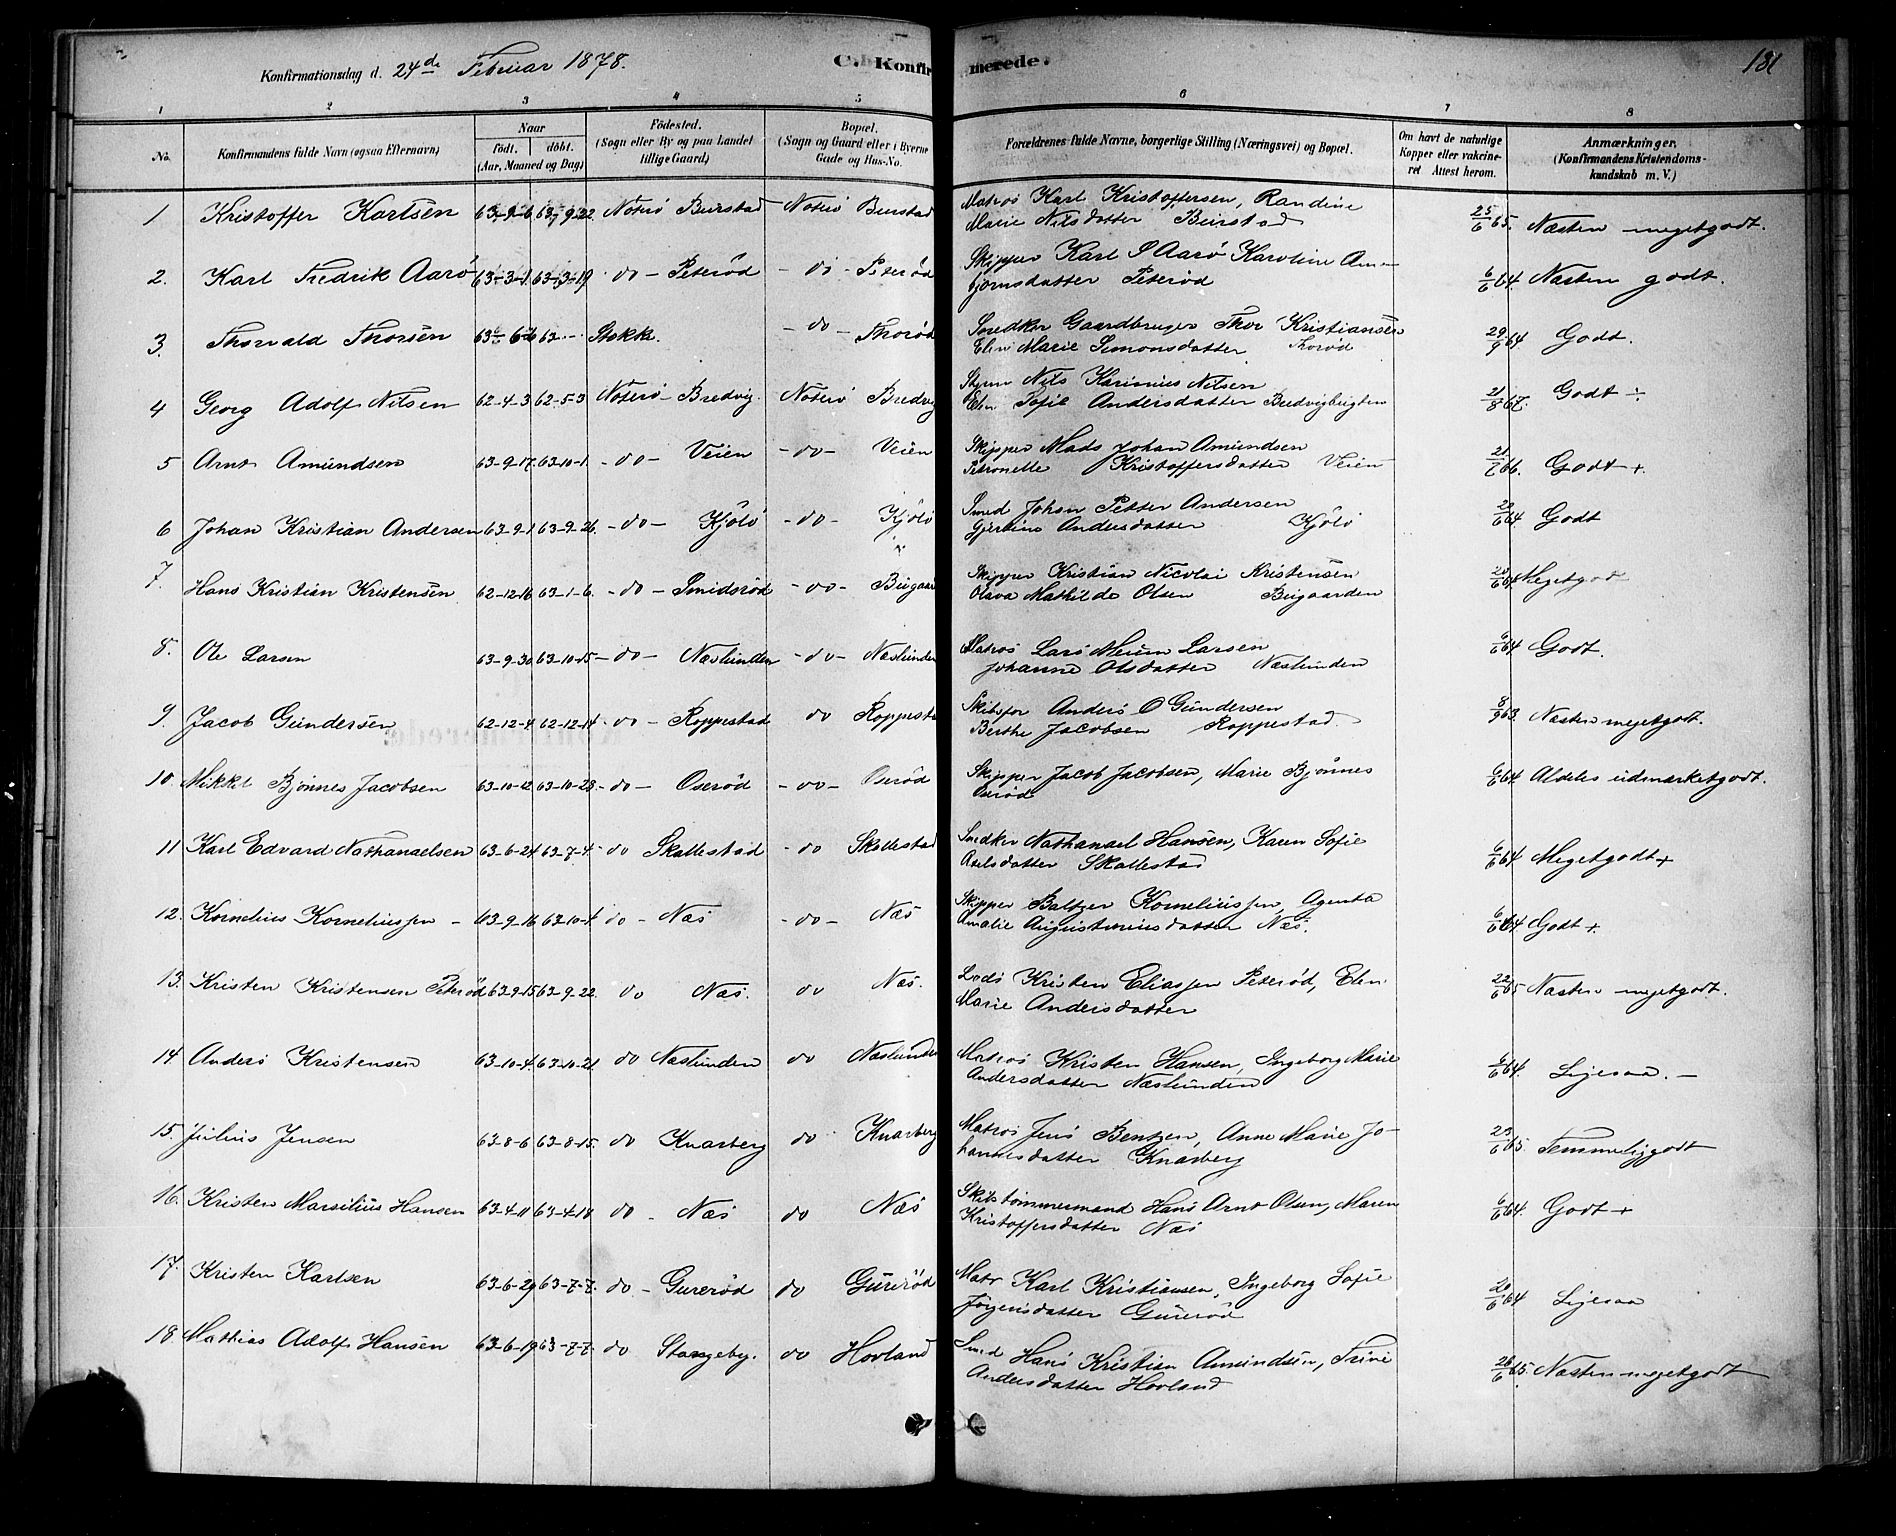 Konfirmationsdag d. 24de Februar 1878.
C. Konfirmerede.
181
1 2 3 4 5 6 7 8
No.
Konfirmandens fulde Navn (ogsaa Efternavn)
Naar
født. døbt.
(Aar, Maaned og Dag)
Födested.
(Sogn eller By og paa Landet
tillige Gaard)
Bopæl.
(Sogn og Gaard eller i Byerne
Gade og Hus-No.
Forældrenes fulde Navne, borgerlige Stilling (Næringsvei) og Bopæl.
Om havt de naturlige
Kopper eller vakcine-
ret Attest herom.
Anmærkninger.
(Konfirmandens Kristendoms-
kundskab m. V.)
1 Kristoffer Karlsen 63-9-6 63-9-22 Nøterø Buerstad Nøterø Buerstad Matros Karl Kristoffersen, Randine
Marie Nilsdatter Buerstad 25/6 65. Næsten megetgodt.
2. Karl Fredrik Aarø 63-3-1 63-3-19 -do- Peterød -do- Peterød Skipper Karl O Aarø Karoline Arn-
bjørnsdatter Peterød 6/6 64. Næsten godt.
3. Thorvald Thorsen 63-6-26 63.-- Stokke. -do- Thorød Snedker Gaardbruger Thor Kristiansen
Elen Marie Simonsdatter Thorød 29/9 64. Godt.
4 Georg Adolf Nilsen 62-4-3 62-5-3 Nøterø Bredvig. Nøterø Bredvig Styrm Nils Nilsen
Elen Sofie Andersdatter Bredvigbugten 21/8 67. Godt ÷
5 Arnt Amundsen 63-9-17 63-10-1. -do- Veien -do- Veien Skipper Mads Johan Amundsen
Petronelle Kristoffersdatter Veien 21/6 66. Godt +.
6 Johan Kristian Andersen 63-9-1 63-9-26. -do- Kjølø -do- Kjølø Smed Johan Petter Andersen
Gjertine Andersdatter Kjølø 20/6 64. Godt
7. Hans Kristian Kristensen 62-12-16 63-1-6. -do- Smidsrød -do- Buigaard Skipper Kristian Nicolai Kristensen
Olava Mathilde Olsen Buigaarden 20/6 64 Megetgodt
8. Ole Larsen 63-9-30 63-10-15 -do- Næslunden -do- Næslunden Matros Lars Larsen
Johanne Olsdatter Næslunden 6/6 64 Godt.
9. Jacob Gundersen 62-12-4 62-12-14. do - Roppestad do Roppestad Skibsfør Anders O Gundersen
Berthe Jacobsen Roppestad. 8/9 63. Næsten megetgodt.
10. Mikkel Bjønnes Jacobsen 63-10-12 63-10-28 -do- Oserød -do- Oserød Skipper Jacob Jacobsen, Marie Bjønnes
Oserød 6/6 64 Aldeles udmærketgodt.
11 Karl Edvard Nathanaelsen 63-6-24 63-7-4. -do Skallestad -do Skallestad Snedker Nathanael Hansen, Karen Sofie
Axelsdatter Skallestad 6/6 64 Megetgodt +
12. Kornelius Korneliussen - 63-9-16 63-10-4 do - Næs -do- Næs Skipper Baltzer Korneliussen, Agenta
Amalie Augustinusdatter Næs. 6/6 64 Godt +.
13. Kristen Kristensen Peterød 63-9-15 63-9-22. do Næs. do Næs. Lods Kristen Eliassen Peterød, Elen
Marie Andersdatter 22/6 65 Næsten megetgodt.
14 Anders Kristensen 63-10-4. 63-10-21 do Næslunden do Næslunden Matros Kristen Hansen, Ingeborg Marie
Andersdatter Næslunden 6/6 64. Ligesaa. -
15. Julius Jensen 63-8-6 63-8-15. do Knarberg do Knarberg Matros Jens Bentzen, Anne Marie Jo-
hannesdatter Knarberg 23/6 65. Temmeliggodt
16. Kristen Marsilius Hansen 63-4-11 63-4-18 do - Næs do Næs Skibstømmermand Hans Arnt Olsen, Maren
Kristoffersdatter Næs 6/6 64. Godt +
17. Kristen Karlsen 63-6-29 63-7-7. do - Gurerød do Gurerød Matr Karl Kristiansen, Ingeborg Sofie
Jørgensdatter Gurerød 20/6 64 Ligesaa
18. Mathias Adolf Hansen 63-6-19 63-7-7. do Stangeby. do Hovland Smed Hans Kristian Amundsen, Trine
Andersdatter Hovland 26/6 65. Næsten megetgodt